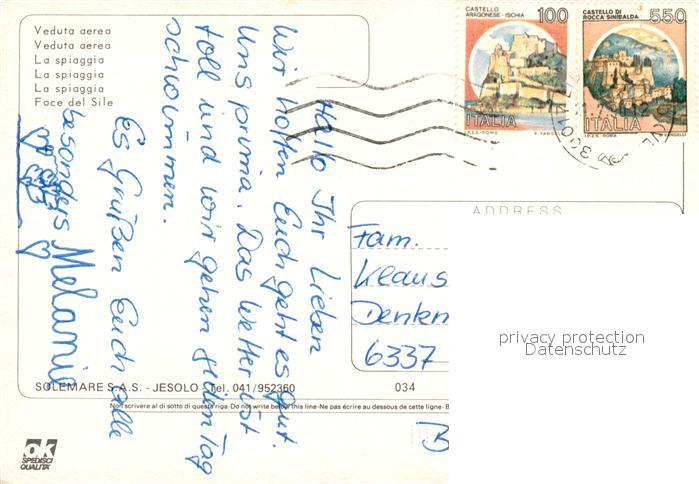 Veduta aerea
Veduta aerea
La spiaggia
La spiaggia
La spiaggia
Foce del Sile
CASTELLO ARAGONESE - ISCHIA
100
ITALIA
I.P.Z.S. - ROMA
CASTELLO DI ROCCA SINIBALDA
550
ITALIA
I.P.Z.S. - ROMA
Hallo Ihr Lieben
Wir hoffen Euch geht es gut.
Uns prima. Das Wetter ist
toll und wir gehen jeden Tag
schwimmen.
Es Grüßen Euch alle
besonders Melanie
ADDRESS
Fam.
Klaus
Denken
6337
privacy protection
Datenschutz
SOLEMARE S.A.S. - JESOLO - Tel. 041/952360
034
Non scrivere al di sotto di questa riga-Do not write below this line-Ne pas écrire au dessous de cette ligne-
ok
SPEDISCI
QUALITA'